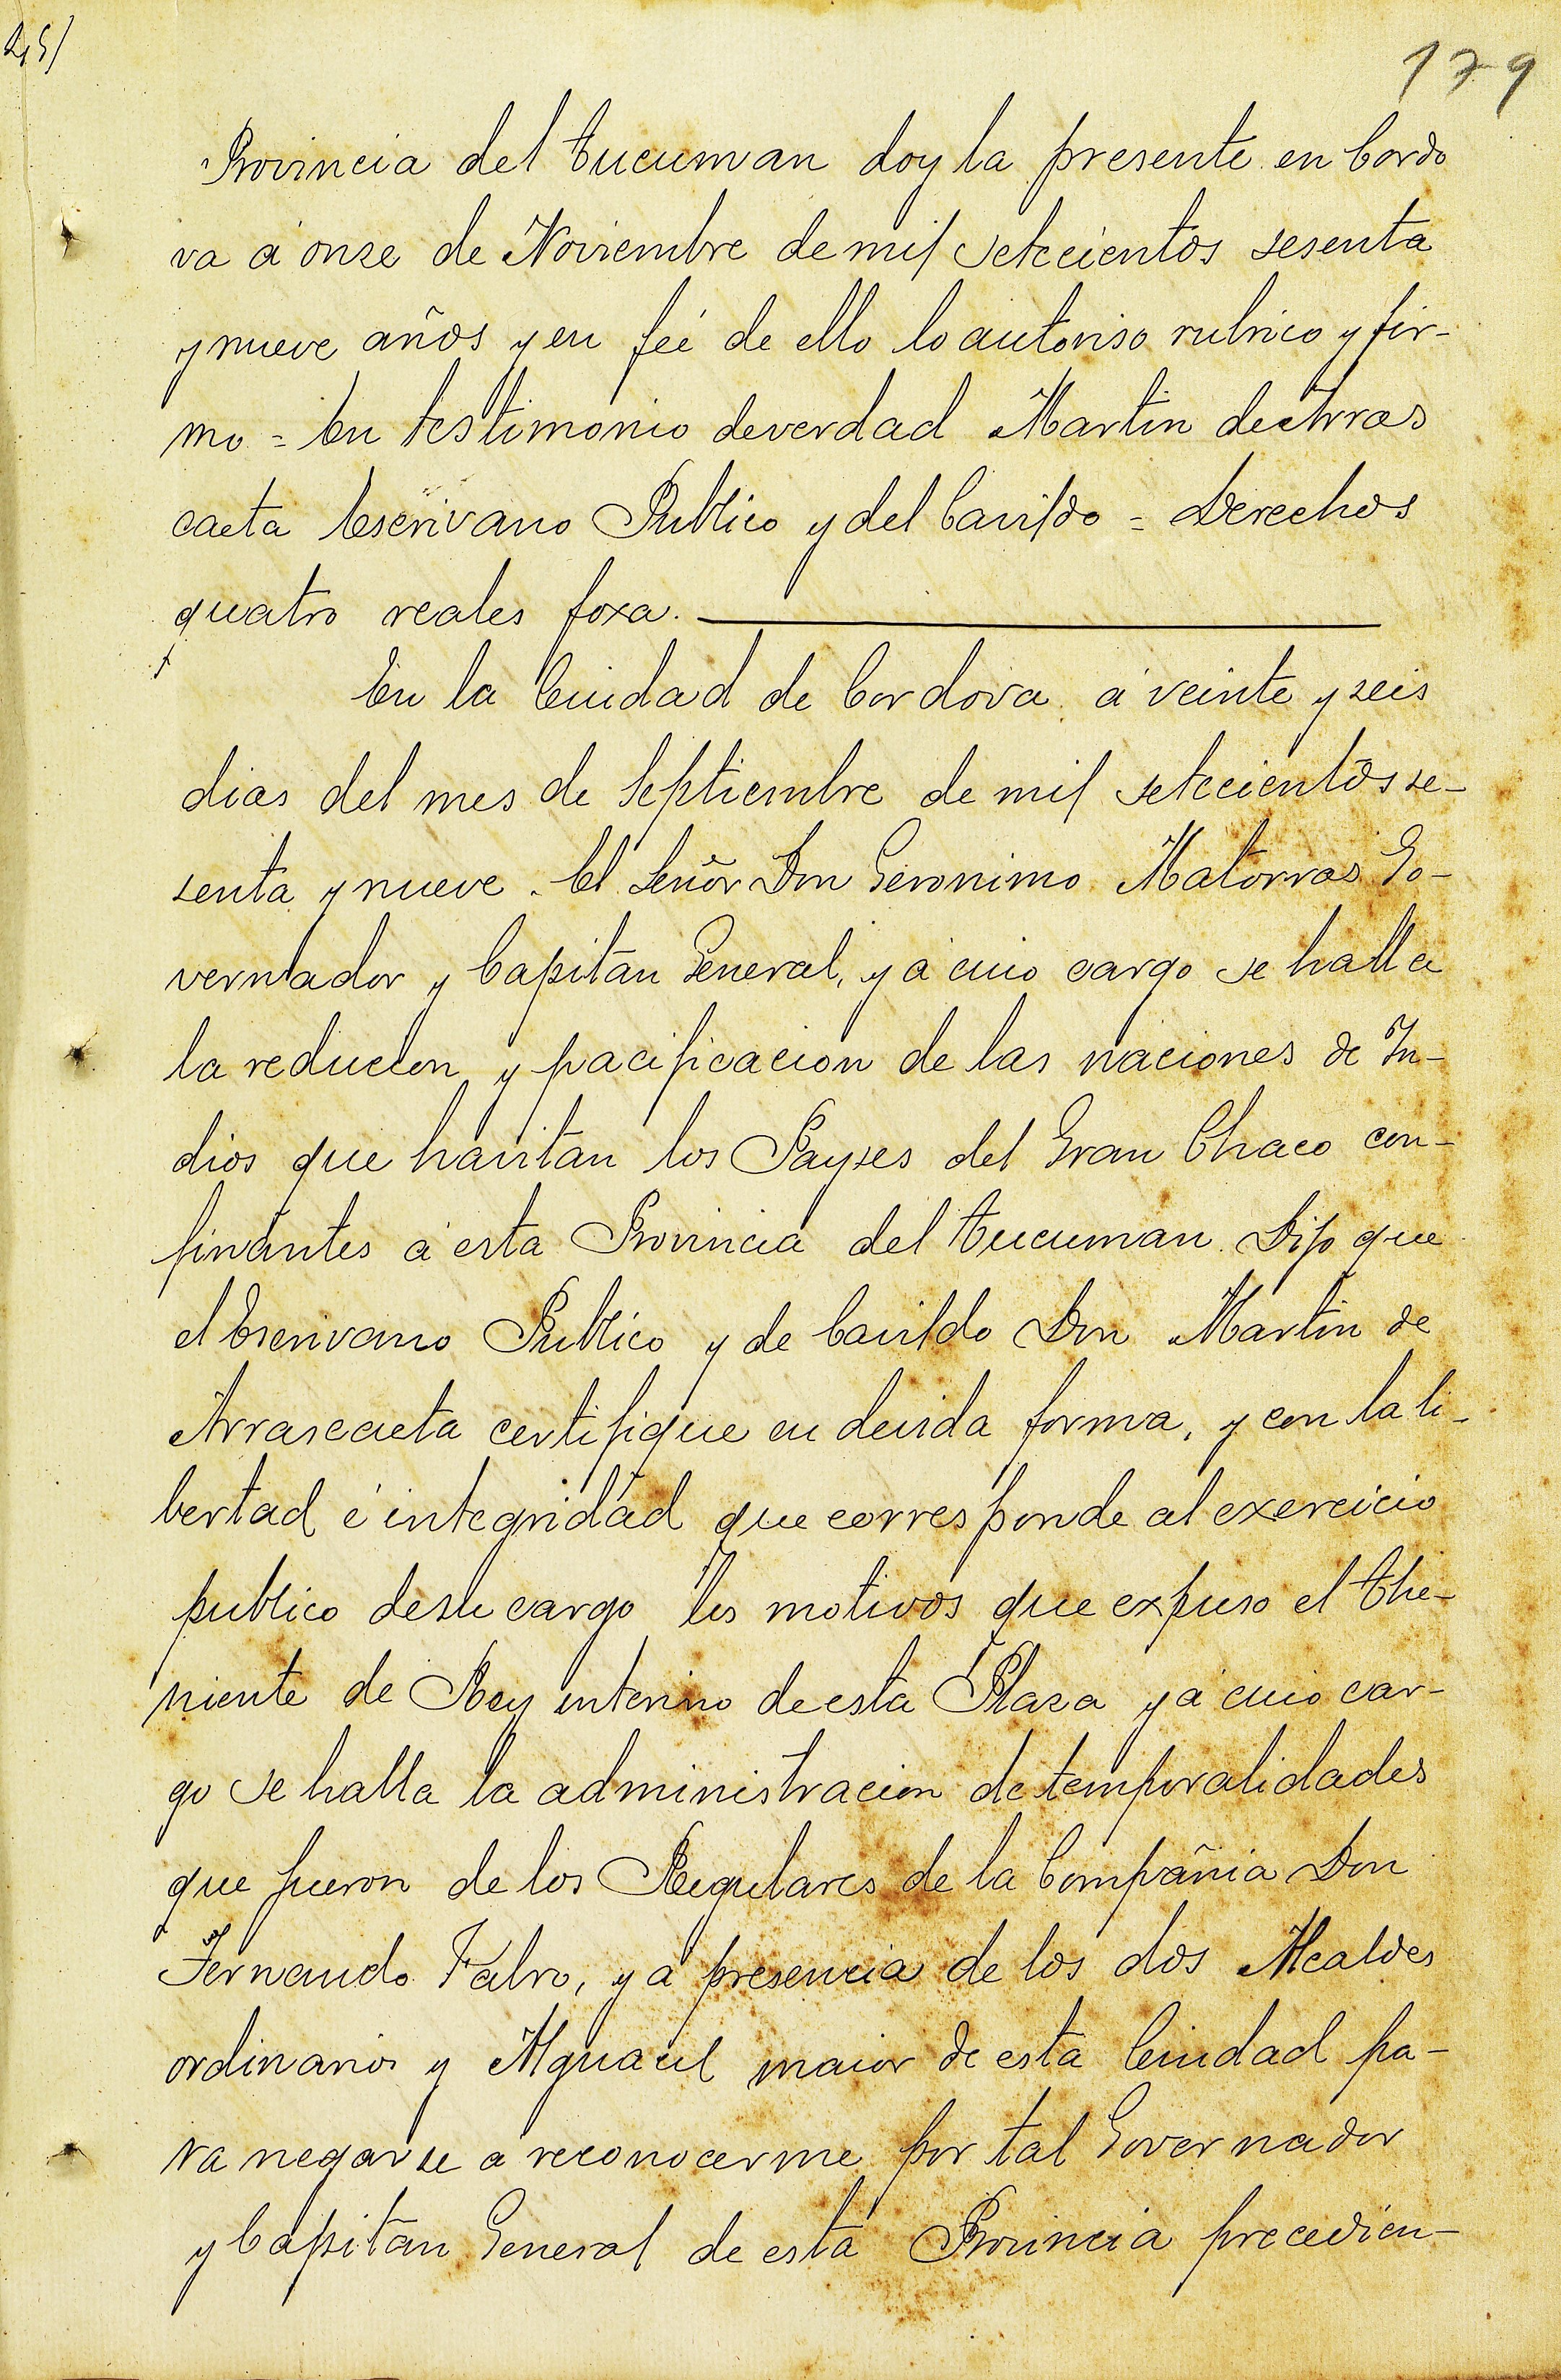 245/
179
Provincia del Tucuman doy la presente en Cordo
va á onze de Noviembre de mil setecientos sesenta
y nueve años y en feé de ello lo autoriso rubrico y fir-
mo = En testimonio de verdad Martin de Arras
caeta Escrivano Publico y del Cavildo = Derechos
quatro reales foxa.
En la Ciudad de Cordova á veinte y seis
dias del mes de Septiembre de mil setecientos se-
senta y nueve. El Señor Don Geronimo Matorras Go-
vernador y Capitan General, y á cuio cargo se halla
la reducion y pacificacion de las naciones de In-
dios que havitan los Payses del Gran Chaco con-
finantes á esta Provincia del Tucuman. Dijo que
el Escrivano Publico y de Cavildo Don Martin de
Arrascaeta certifique en devida forma, y con la li-
bertad é integridad que corresponde al exercicio
publico desu cargo los motivos que expuso el The-
niente de Rey interino de esta Plaza y á cuio car-
go se halla la administracion de temporalidades
que fueron de los Regulares de la Compañia Don
Fernando Fabro, y á presencia de los dos Alcaldes
ordinarios y Alguacil maior de esta Ciudad pa-
ra negarse a reconocerme por tal Governador
y Capitan General de esta Provincia precedien-